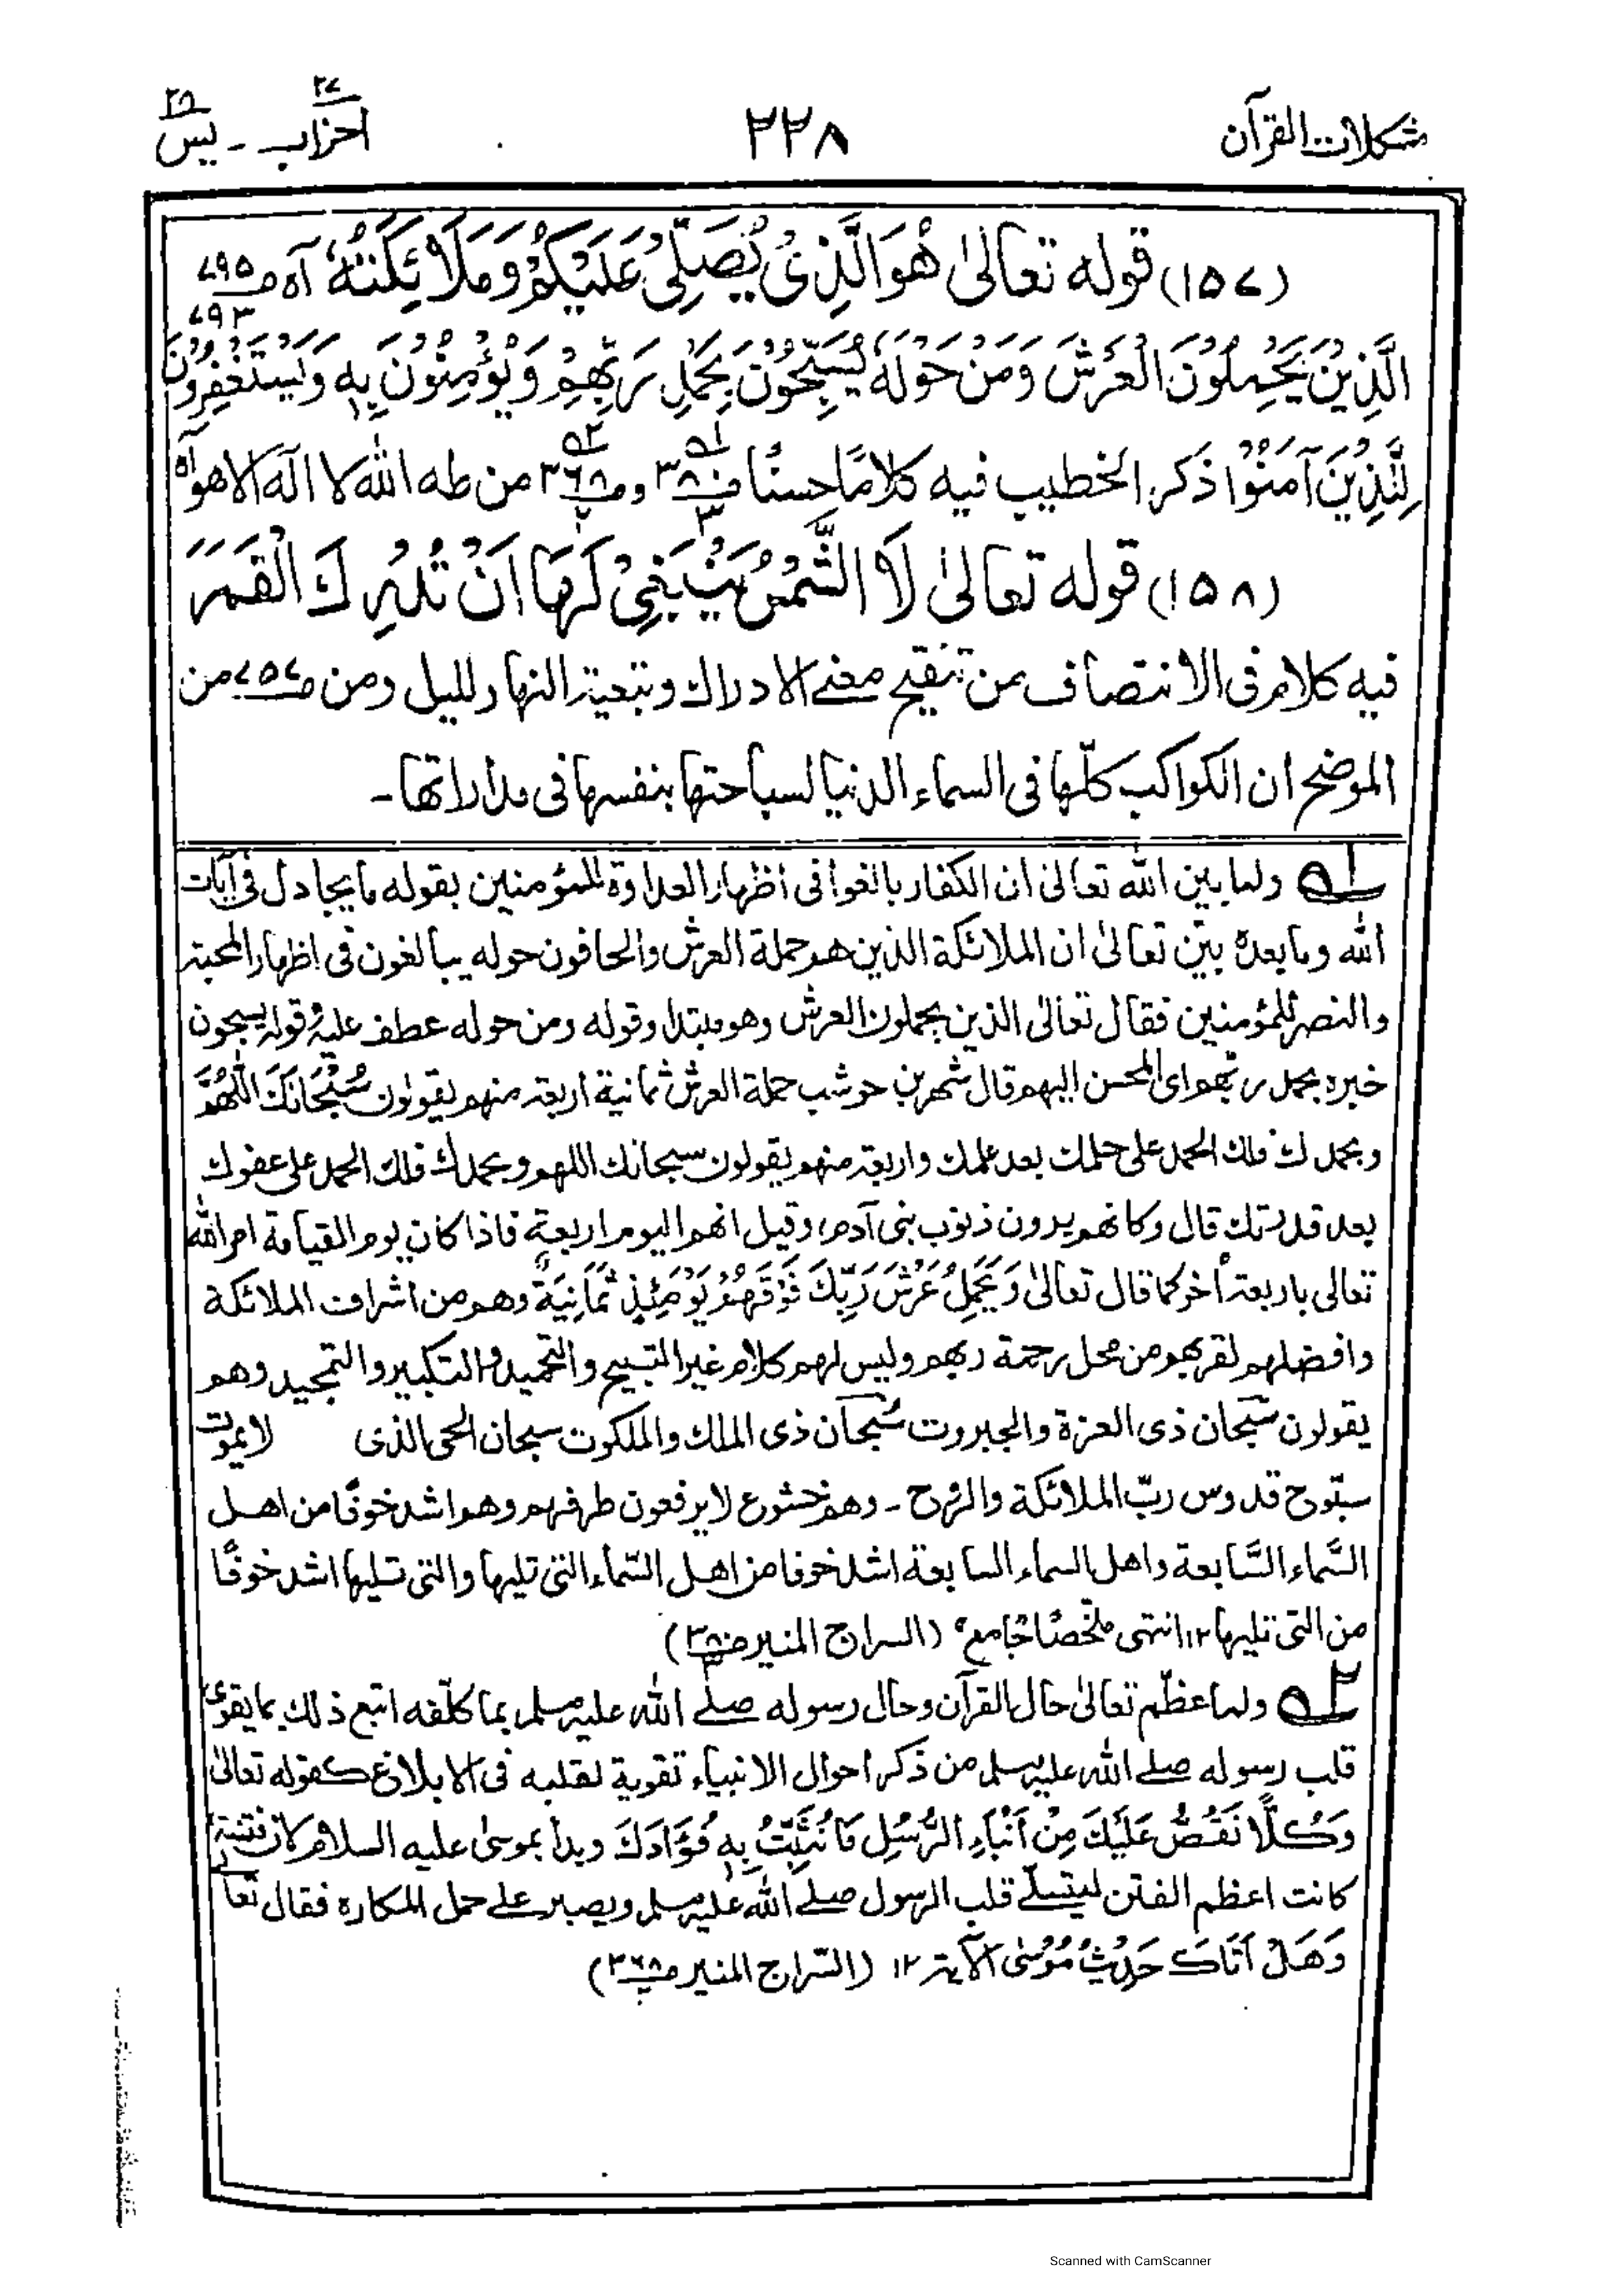 مشكلات القرآن ٢٢٨ احزاب ـ يس
(١٥٧) قوله تعالىٰ هُوَ الَّذِىْ يُصَلِّىْ عَلَيْكُمْ وَمَلَائِكَتُهٗ آه م ٧٩٥
٧٩٣
الَّذِيْنَ يَحْمِلُوْنَ الْعَرْشَ وَمَنْ حَوْلَهٗ يُسَبِّحُوْنَ بِحَمْدِ رَبِّهِمْ وَيُؤْمِنُوْنَ بِهٖ وَيَسْتَغْفِرُوْنَ
لِلَّذِيْنَ آمَنُوْا ذكر الخطيب فيه كلامًا حسنًا ص٣٨٠ وص٣٦٨ من طه الله لا اله الا هو آه
(١٥٨) قوله تعالىٰ لَا الشَّمْسُ يَنْبَغِىْ لَهَا اَنْ تُدْرِكَ الْقَمَرَ
فيه كلام فى الانتصاف من تنقيح معنے الادراك وتبعية النهار لليل ومن ص٧٥٧ من
الموضح ان الكواكب كلّها فى السماء الدنيا لسباحتها بنفسها فى مداراتها ـ
١ه ولما بين الله تعالىٰ ان الكفار بالغوا فى اظهار العداوة للمؤمنين بقوله ما يجادل فى آيات
الله وما بعده بيّن تعالىٰ ان الملائكة الذين هم حملة العرش والحافون حوله يبالغون فى اظهار المحبة
والنصر للمؤمنين فقال تعالىٰ الذين يحملون العرش وهو مبتدا وقوله ومن حوله عطف عليه وقوله يسبحون
خبره بحمد ربهم اى المحسن اليهم قال شهر بن حوشب حملة العرش ثمانية اربعة منهم يقولون سُبْحَانَكَ اللّٰهُمَّ
وبحمدك فلك الحمد على حلمك بعد علمك واربعة منهم يقولون سبحانك اللهم وبحمدك فلك الحمد على عفوك
بعد قدرتك قال وكانهم يرون ذنوب بنى آدم، وقيل انهم اليوم اربعة فاذا كان يوم القيامة امر الله
تعالى باربعة أخر كما قال تعالىٰ وَيَحْمِلُ عَرْشَ رَبِّكَ فَوْقَهُمْ يَوْمَئِذٍ ثَمَانِيَةٌ وهم من اشراف الملائكة
وافضلهم لقربهم من محل رحمة ربهم وليس لهم كلام غير التسبيح والتحميد والتكبير والتمجيد وهم
يقولون سُبحان ذى العزة والجبروت سُبحان ذى الملك والملكوت سبحان الحى الذى لا يموت
سبّوح قدوس ربّ الملائكة والرّوح ـ وهم خشوع لا يرفعون طرفهم وهم اشد خوفًا من اهل
السَّماء السَّابعة واهل السماء السابعة اشد خوفا من اهل السّماء التى تليها والتى تليها اشد خوفًا
من التى تليها ١٢ انتهى ملخصًا جامع (السراج المنير ص٣٨٠)
٢ه ولما عظّم تعالىٰ حال القرآن وحال رسوله صلے الله عليه وسلم بما كلّفه اتبع ذلك بما يقوى
قلب رسوله صلے الله عليه وسلم من ذكر احوال الانبياء تقوية لقلبه فى الابلاغ كقوله تعالىٰ
وَكُلًّا نَقُصُّ عَلَيْكَ مِنْ اَنْبَاءِ الرُّسُلِ مَا نُثَبِّتُ بِهٖ فُؤَادَكَ وبدأ بموسىٰ عليه السلام كان فتنته
كانت اعظم الفتن ليتسلّے قلب الرسول صلے الله عليه وسلم ويصبر علے حمل المكاره فقال تعالىٰ
وَهَلْ اَتَاكَ حَدِيْثُ مُوْسٰى الآية ١٢ (السّراج المنير ص٣٦٨)
Scanned with CamScanner